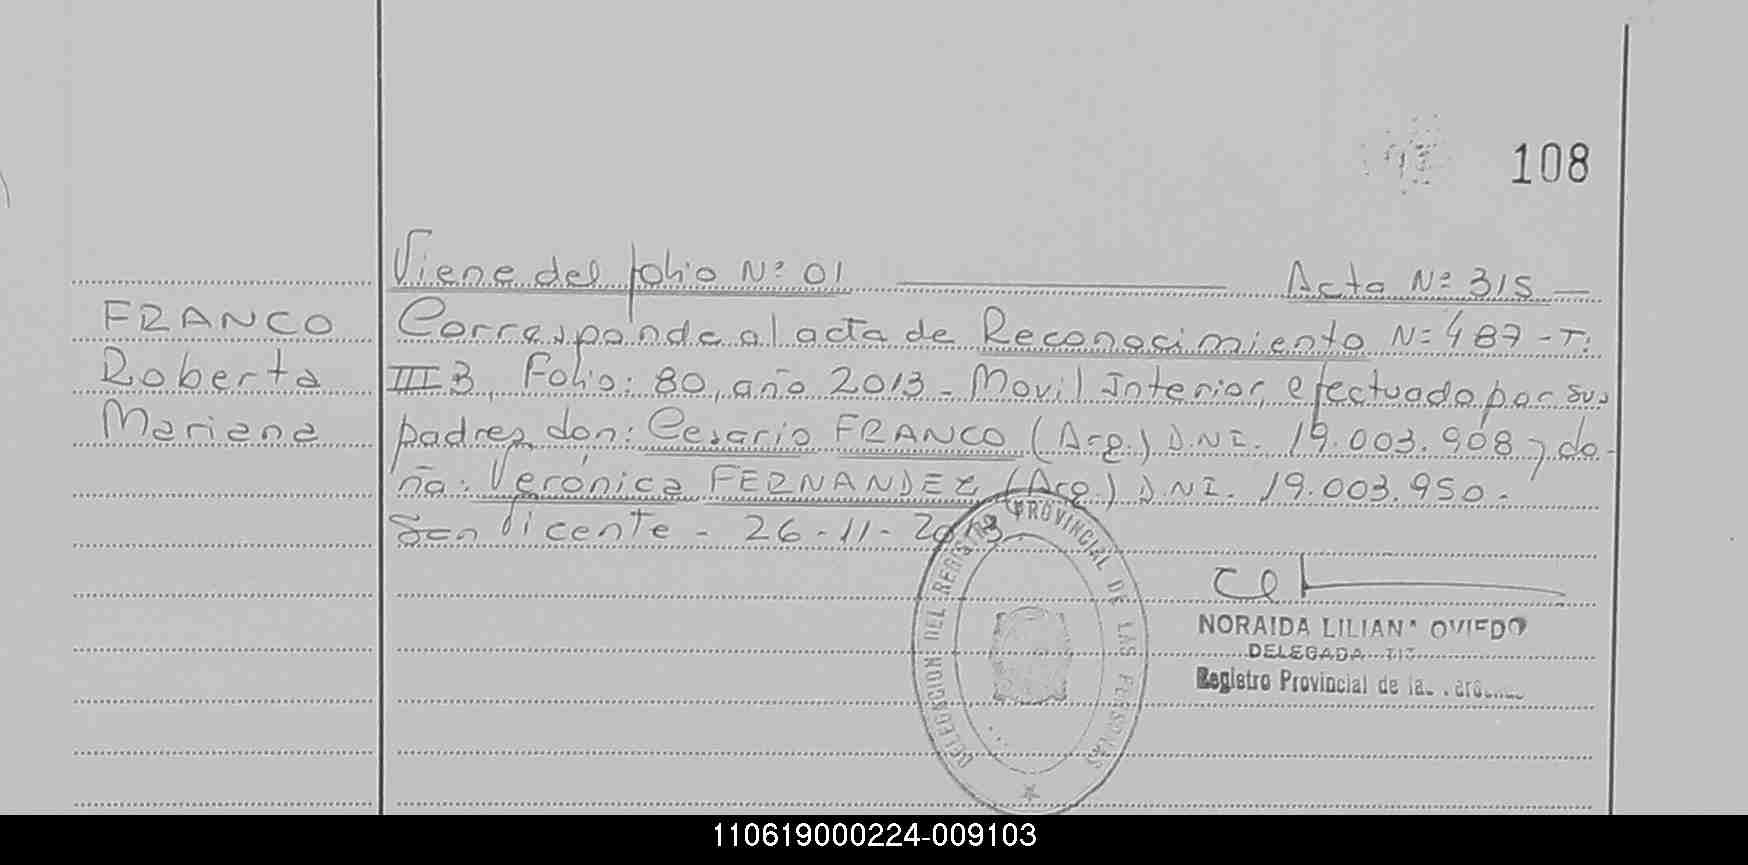 108
Viene del folio Nº 01 ———— Acta Nº 315 —
FRANCO
Roberta
Mariana
Corresponde al acta de Reconocimiento Nº 487 - T:
III B, Folio: 80, año 2013 - Movil Interior, efectuado por sus
padres don: Cesario FRANCO (Arg.) D.N.I. 19.003.908 y do-
ña: Verónica FERNANDEZ (Arg.) D.N.I. 19.003.950.-
San Vicente - 26-11-2013.-
DELEGACION DEL REGISTRO PROVINCIAL DE LAS PERSONAS
NORAIDA LILIANA OVIEDO
DELEGADA
Registro Provincial de las
110619000224-009103